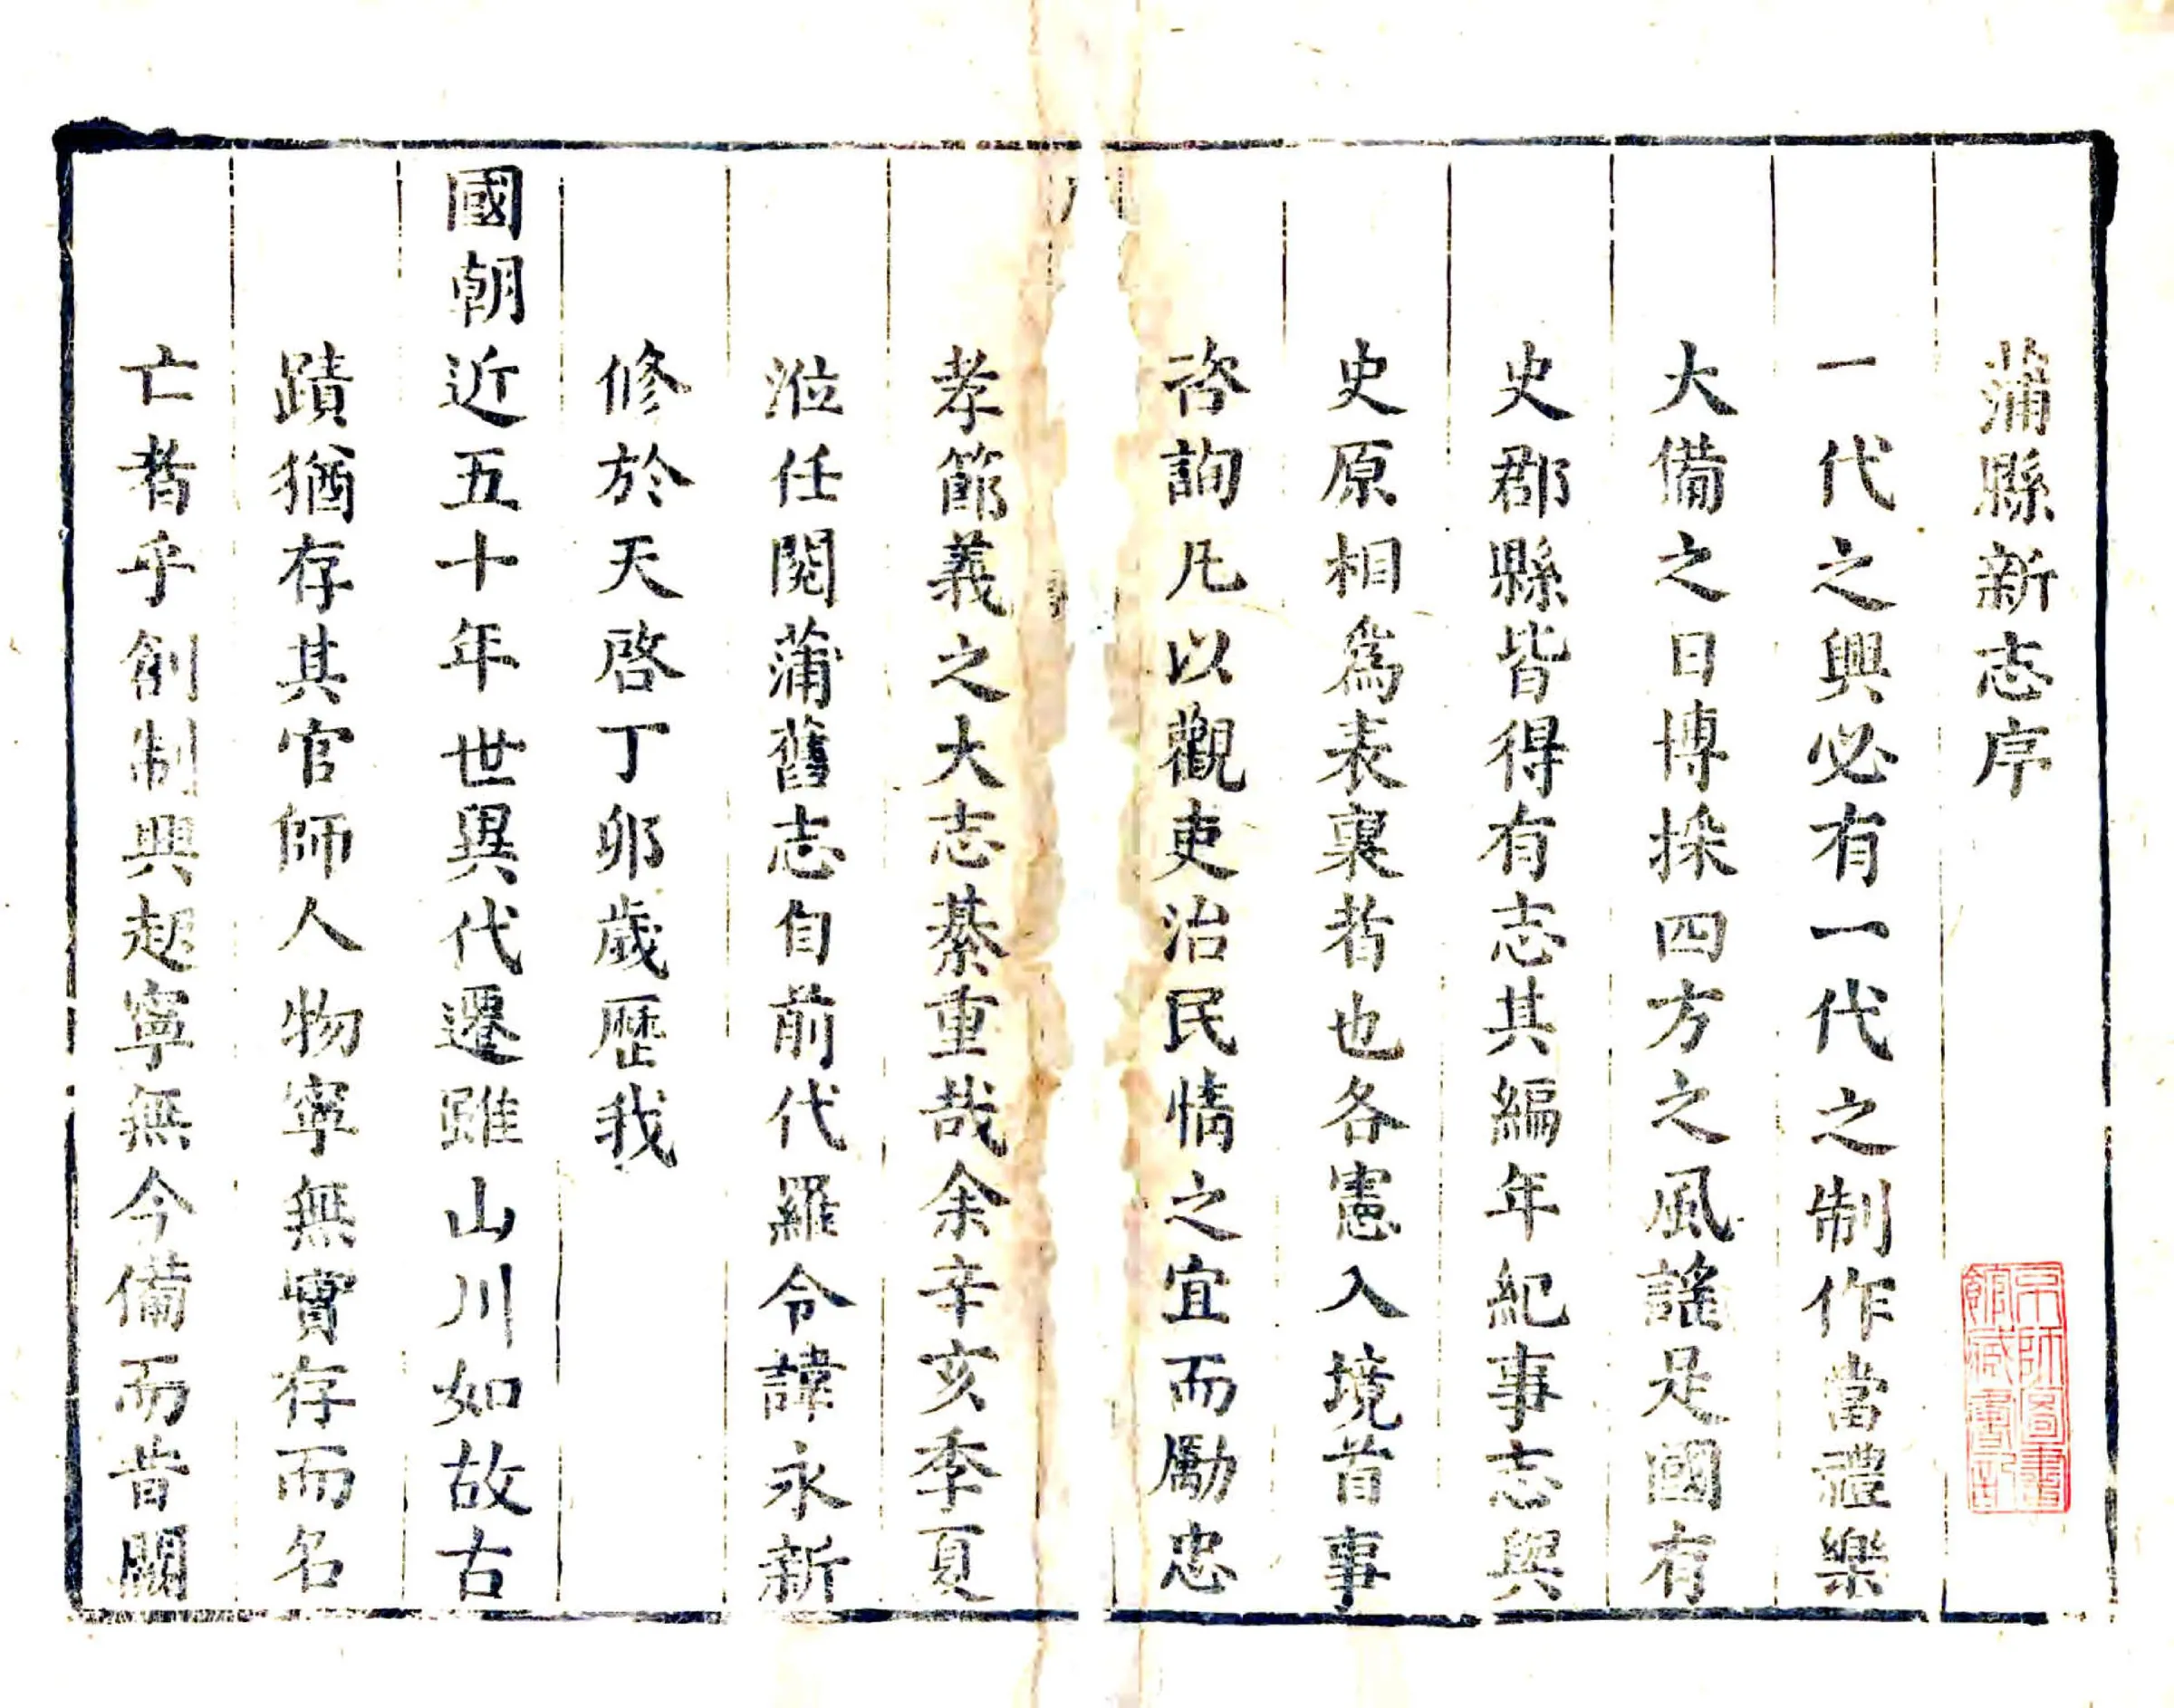 蒲縣新志序
一代之興必有一代之制作當禮樂
大備之日博採四方之風謠是國有
史郡縣皆得有志其編年紀事志與
史原相為表裏者也各憲入境首事
咨詢凡以觀吏治民情之宜而勵忠
孝節義之大志綦重哉余辛亥季夏
涖任閱蒲舊志自前代羅令諱永新
修於天啓丁卯歲歷我
國朝近五十年世異代遷雖山川如故古
蹟猶存其官師人物寧無實存而名
亡者乎創制興起寧無今備而昔闕
京師圖書
館藏書記